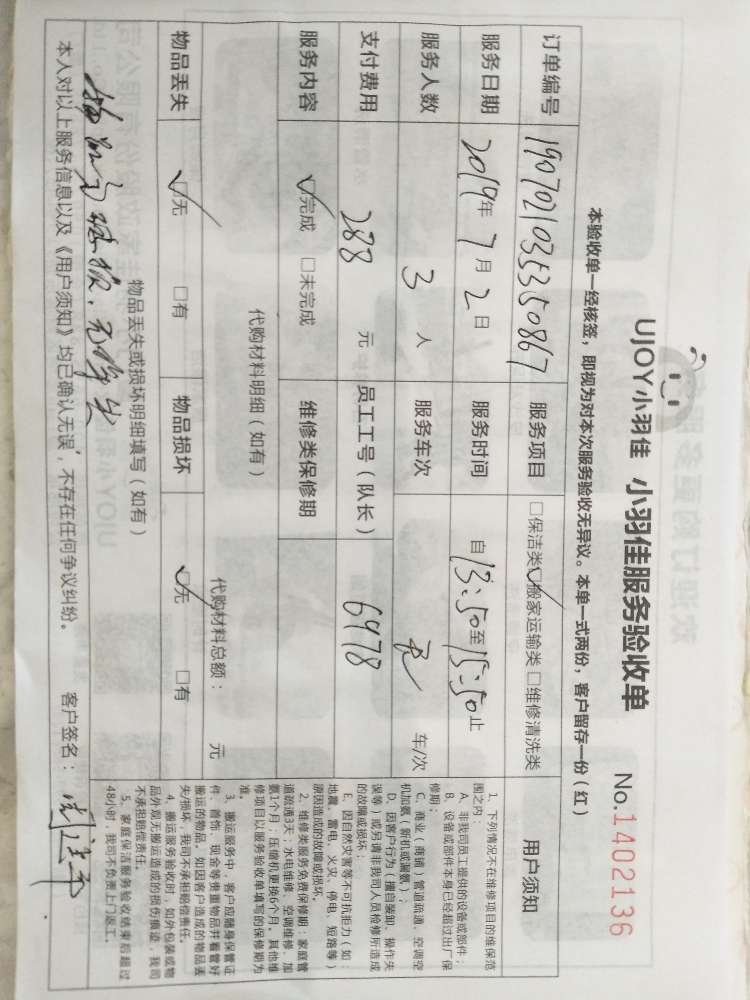 UJOY小羽佳 小羽佳服务验收单 No.1402136
本验收单一经核签，即视为对本次服务验收无异议。本单一式两份，客户留存一份（红）
订单编号 1907021035350867 服务项目 □保洁类 ☑搬家运输类 □维修清洗类
服务日期 2019年7月2日 服务时间 自13:50至15:50止
服务人数 3人 服务车次 车/次
支付费用 288元 员工工号（队长） 6978
服务内容 ☑完成 □未完成 维修类保修期
代购材料明细（如有）
代购材料总额： 元
物品丢失 ☑无 □有 物品损坏 ☑无 □有
物品丢失或损坏明细填写（如有）
物品完
本人对以上服务信息以及《用户须知》均已确认无误，不存在任何争议纠纷。 客户签名：
用户须知
1、下列情况不在维修项目的维保范
围之内：
A、非我司员工提供的设备或部件；
B、设备或部件本身已经超过出厂保
修期；
C、商业（商铺）管道疏通、空调空
机加氨（新机或漏氨）；
D、因客户行为（擅自装卸、操作失
误等）或另请非我司人员检修所造成
的故障或损坏；
E、因自然灾害等不可抗拒力（如：
地震、雷电、火灾、停电、短路等）
原因造成的故障或损坏。
2、维修类服务免费保修期：家庭管
道疏通3天；水电维修、空调维修、加
氨1个月；压缩机更换6个月。其他维
修项目以服务验收单填写的保修期为
准。
3、搬运服务中，客户应随身保管证
件、首饰、现金等贵重物品并看管好
搬运的物品，如因客户造成的物品丢
失/损坏，我司不承担赔偿责任。
4、搬运服务验收时，如外包装或物
品外观无搬运造成的损伤痕迹，我司
不承担赔偿责任。
5、家庭保洁服务验收结束后超过
48小时，我司不负责上门返工。